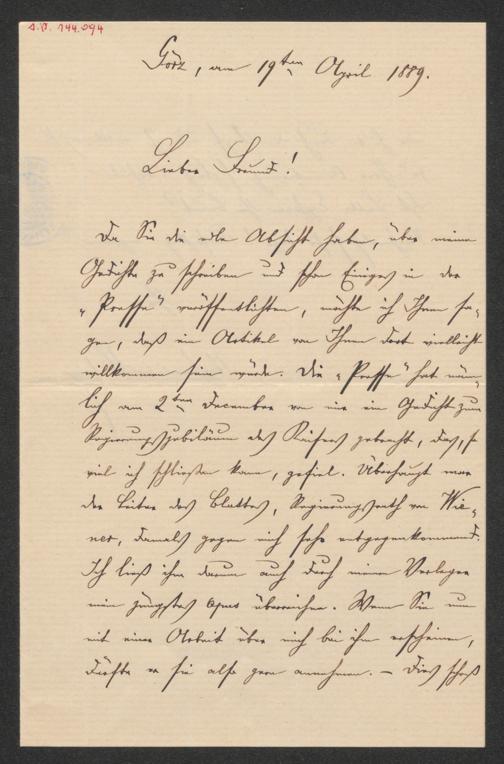 I.N. 144.094
Görz, am 19ten April 1889.
Lieber Freund!
Da Sie die edle Absicht haben, über meine
Gedichte zu schreiben und schon Einiges in der
„Presse“ veröffentlichten, möchte ich Ihnen sa-
gen, daß ein Artikel von Ihnen dort vielleicht
willkommen sein würde. Die „Presse“ hat näm-
lich am 2ten Dezember von mir ein Gedicht zum
Regierungsjubiläum des Kaisers gebracht, das, so
viel ich schließen kann, gefiel. Überhaupt war
der Leiter des Blattes, Regierungsrath von Wie-
ner, damals gegen mich sehr entgegenkommend.
Ich ließ ihm darum auch durch meinen Verleger
mein jüngstes Opus überreichen. Wenn Sie nun
mit einer Arbeit über mich bei ihm erscheinen,
dürfte er sie also gern annehmen. – Dies schoß